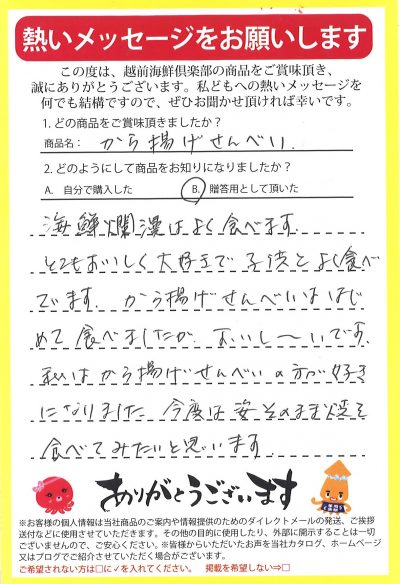 熱いメッセージをお願いします
この度は、越前海鮮倶楽部の商品をご賞味頂き、
誠にありがとうございます。私どもへの熱いメッセージを
何でも結構ですので、ぜひお聞かせ頂ければ幸いです。
1. どの商品をご賞味頂きましたか？
商品名： から揚げせんべい
2. どのようにして商品をお知りになりましたか？
A. 自分で購入した B. 贈答用として頂いた
海鮮爛漫はよく食べます
とてもおいしく大好きで子供とよく食べ
ています. から揚げせんべいははじ
めて食べましたが、おいし〜いです.
私はから揚げせんべいの方が好き
になりました 今度は姿そのまま焼を
食べてみたいと思います
ありがとうございます
※お客様の個人情報は当社商品のご案内や情報提供のためのダイレクトメールの発送、ご挨拶
送付などに使用させていただきます。その他の目的に使用したり、外部に開示することは一切
ございませんので、ご安心ください。※皆様からいただいたお声を当社カタログ、ホームページ
又はブログでご紹介させていただく場合がございます。
ご希望されない方は□に✓を入れてください。 掲載を希望しない⇒□